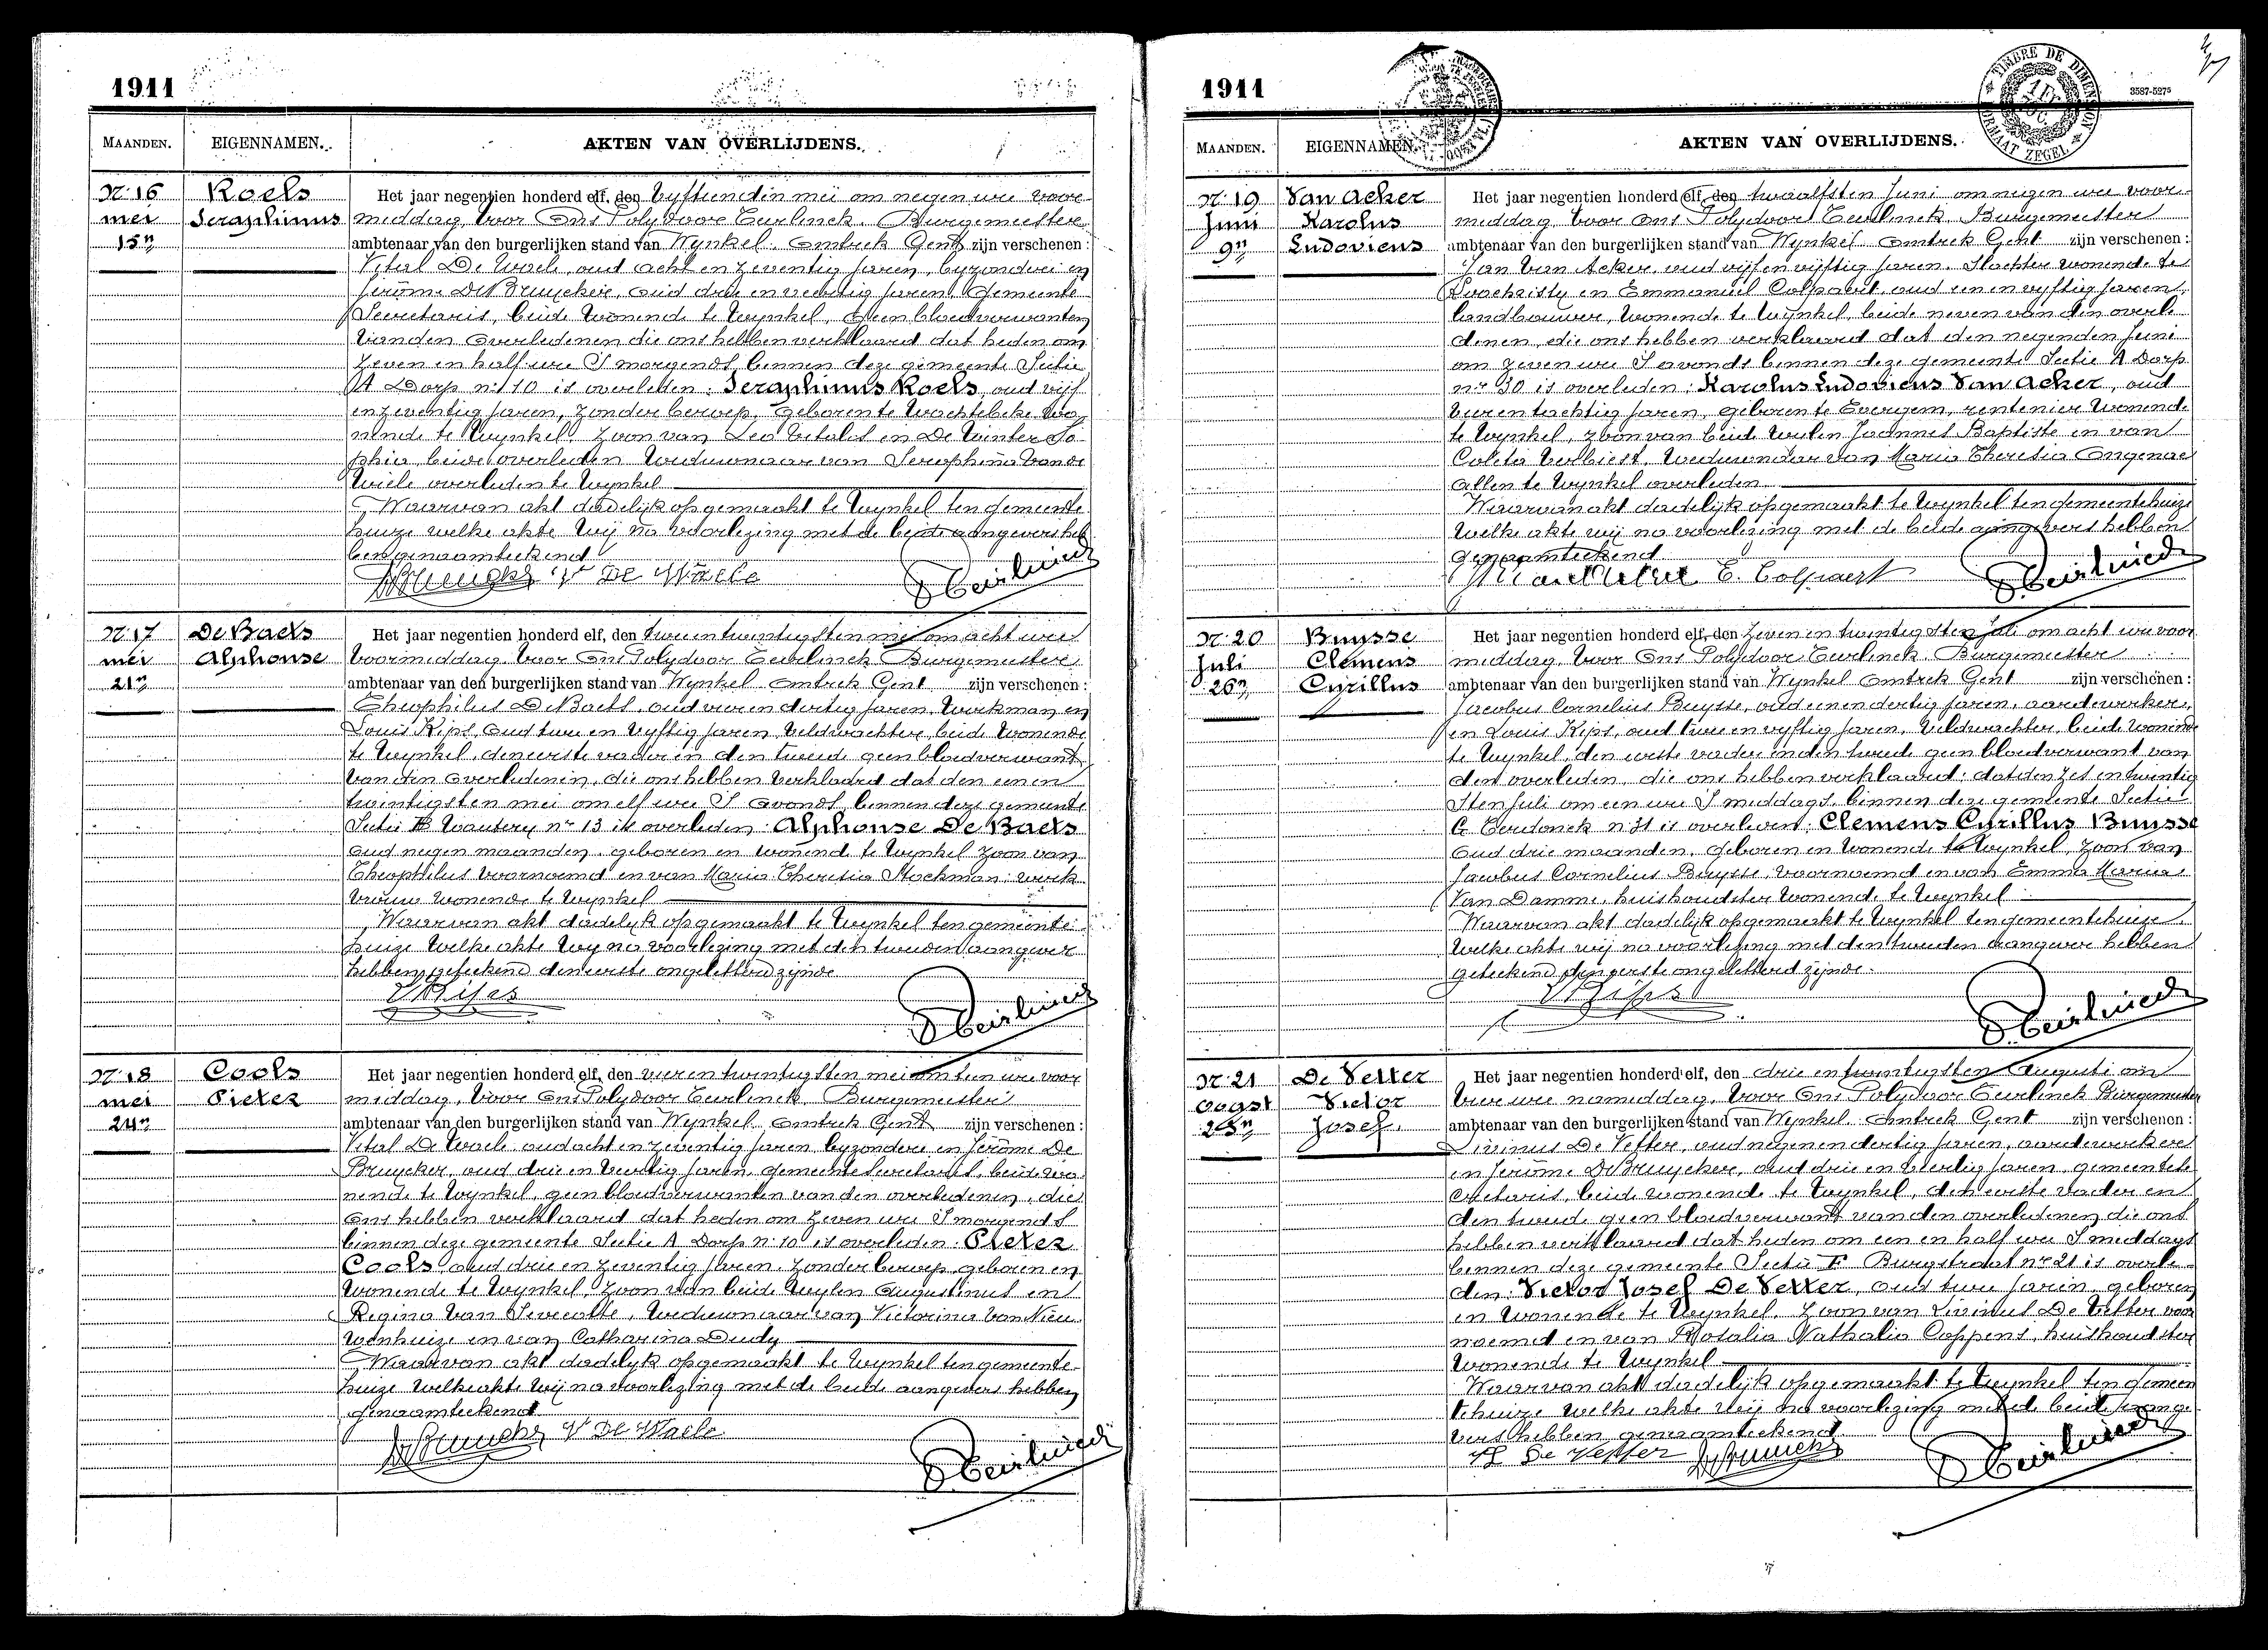 1911
MAANDEN. EIGENNAMEN. AKTEN VAN OVERLIJDENS.
Nr 16 Roels
mei Seraphinus
15n
Het jaar negentien honderd elf, den vyftienden mei om negen ure voor
middag, voor Ons Polydoor Eurlinck, Burgemeester
ambtenaar van den burgerlijken stand van Wynkel omtrek Gent zijn verschenen :
Vital De Waele, oud acht en zeventig jaren, byzondere en
Jerôme De Bruycker, oud drie en veertig jaren, Gemeente
Secretaris, beide wonende te Wynkel, geen bloedverwanten
van den overledenen die ons hebben verklaard dat heden om
zeven en half ure 's morgends binnen deze gemeente Sectie
A Dorp nr 10 is overleden : Seraphinus Roels, oud vijf
en zeventig jaren, zonder beroep, geboren te Wachtebeke wo
nende te Wynkel, zoon van Leo Vitalis en De Winter So
phia, beide overleden weduwnaar van Seraphina Vande
Wiele overleden te Wynkel
Waarvan akt dadelijk opgemaakt te Wynkel ten gemeente
huize welke akte wij na voorlezing met de beide aangevers heb
ben genaamteekend
V De Waele
Nr 17 De Baets
mei Alphonse
21n
Het jaar negentien honderd elf, den twee en twintigsten mei om acht ure
voormiddag voor Ons Polydoor Eurlinck Burgemeester
ambtenaar van den burgerlijken stand van Wynkel omtrek Gent zijn verschenen :
Theophilus De Baets, oud vier en dertig jaren, werkman en
Louis Kips, oud twee en vyftig jaren, veldwachter, beide wonende
te Wynkel, den eerste vader en den tweede geen bloedverwant
van den overledenen, die ons hebben verklaard dat den een en
twintigsten mei om elf ure 's avonds binnen deze gemeente
Sectie B nr 13 is overleden : Alphonse De Baets
oud negen maanden, geboren en wonende te Wynkel zoon van
Theophilus voornoemd en van Maria Theresia Stockman, werk
vrouw wonende te Wynkel
Waarvan akt dadelyk opgemaakt te Wynkel ten gemeente
huize welke akte wy na voorlezing met den tweeden aangever
hebben geteekend den eerste ongeletterd zijnde
L Kips
Nr 18 Cools
mei Pieter
24n
Het jaar negentien honderd elf, den vier en twintigsten mei om tien ure voor
middag, voor Ons Polydoor Eurlinck, Burgemeester
ambtenaar van den burgerlijken stand van Wynkel omtrek Gent zijn verschenen :
Vital De Waele, oud acht en zeventig jaren, byzondere en Jerôme De
Bruycker, oud drie en veertig jaren, gemeente Secretaris, beide wo
nende te Wynkel, geen bloedverwanten van den overledenen, die
ons hebben verklaard dat heden om zeven ure 's morgends
binnen deze gemeente Sectie A Dorp nr 10 is overleden : Pieter
Cools oud drie en zeventig jaren, zonder beroep, geboren en
wonende te Wynkel, zoon van beide wylen Augustinus en
Regina Van , weduwnaar van Victorina Van Nieu
wenhuize en van Catharina Dudy
Waarvan akt dadelyk opgemaakt te Wynkel ten gemeente
huize welke akte wij na voorlezing met de beide aangevers hebben
genaamteekend
V De Waele
1911
3587-5275
TIMBRE DE DIMENSION
FORMAAT ZEGEL
MAANDEN. EIGENNAMEN. AKTEN VAN OVERLIJDENS.
Nr 19 Van Acker
Juni Karolus
9n Ludovicus
Het jaar negentien honderd elf, den twaalfsten Juni om negen ure voor
middag, voor Ons Polydoor Eurlinck, Burgemeester
ambtenaar van den burgerlijken stand van Wynkel omtrek Gent zijn verschenen :
Jan Van Acker, oud vijf en vijftig jaren, slachter wonende te
Loochristy en Emmanuel Colpaert, oud een en vyftig jaren,
landbouwer, wonende te Wynkel, beide neven van den overle
denen, die ons hebben verklaard dat den negenden Juni
om zeven ure 's avonds binnen deze gemeente Sectie A Dorp
nr 30 is overleden : Karolus Ludovicus Van Acker, oud
vier en tachtig jaren, geboren te Evergem, rentenier wonende
te Wynkel, zoon van beide wylen Joannes Baptiste en van
Coleta Verbiest, weduwnaar van Maria Theresia Ongenae
allen te Wynkel overleden
Waarvan akt dadelyk opgemaakt te Wynkel ten gemeentehuize
welke akte wij na voorlezing met de beide aangevers hebben
genaamteekend
E. Colpaert
Nr 20 Buysse
Juli Clemens
26n Cyrillus
Het jaar negentien honderd elf, den zeven en twintigsten Juli om acht ure voor
middag, voor Ons Polydoor Eurlinck, Burgemeester
ambtenaar van den burgerlijken stand van Wynkel omtrek Gent zijn verschenen :
Jacobus Cornelius Buysse, oud een en dertig jaren, aardewerker,
en Louis Kips, oud twee en vyftig jaren, veldwachter, beide wonende
te Wynkel, den eerste vader en den tweede geen bloedverwant van
den overleden, die ons hebben verklaard, dat den zes en twintig
sten Juli om een ure 's middags, binnen deze gemeente Sectie
C nr 31 is overleden : Clemens Cyrillus Buysse
oud drie maanden, geboren en wonende te Wynkel, zoon van
Jacobus Cornelius Buysse, voornoemd en van Emma Maria
Van Damme, huishoudster wonende te Wynkel
Waarvan akt dadelyk opgemaakt te Wynkel ten gemeentehuize
welke akte wij na voorlezing met den tweeden aangever hebben
geteekend den eerste ongeletterd zijnde.
L Kips
Nr 21 De Vetter
Oogst Victor
23n Josef.
Het jaar negentien honderd elf, den drie en twintigsten Augusti om
vier ure namiddag, voor Ons Polydoor Eurlinck Burgemeester
ambtenaar van den burgerlijken stand van Wynkel omtrek Gent zijn verschenen :
Livinus De Vetter, oud negen en dertig jaren, aardewerker
en Jerôme De Bruycker, oud drie en veertig jaren, gemeente se
cretaris, beide wonende te Wynkel, den eerste vader en
den tweede geen bloedverwant van den overledenen die ons
hebben verklaard dat heden om een en half ure 's middags
binnen deze gemeente Sectie F Burgstraat nr 21 is overle
den : Victor Josef De Vetter, oud twee jaren, geboren
en wonende te Wynkel, zoon van Livinus De Vetter voor
noemd en van Rosalia Nathalia Coppens, huishoudster
wonende te Wynkel
Waarvan akt dadelyk opgemaakt te Wynkel ten gemeen
tehuize welke akte wij na voorlezing met de beide aange
vers hebben genaamteekend
De Vetter